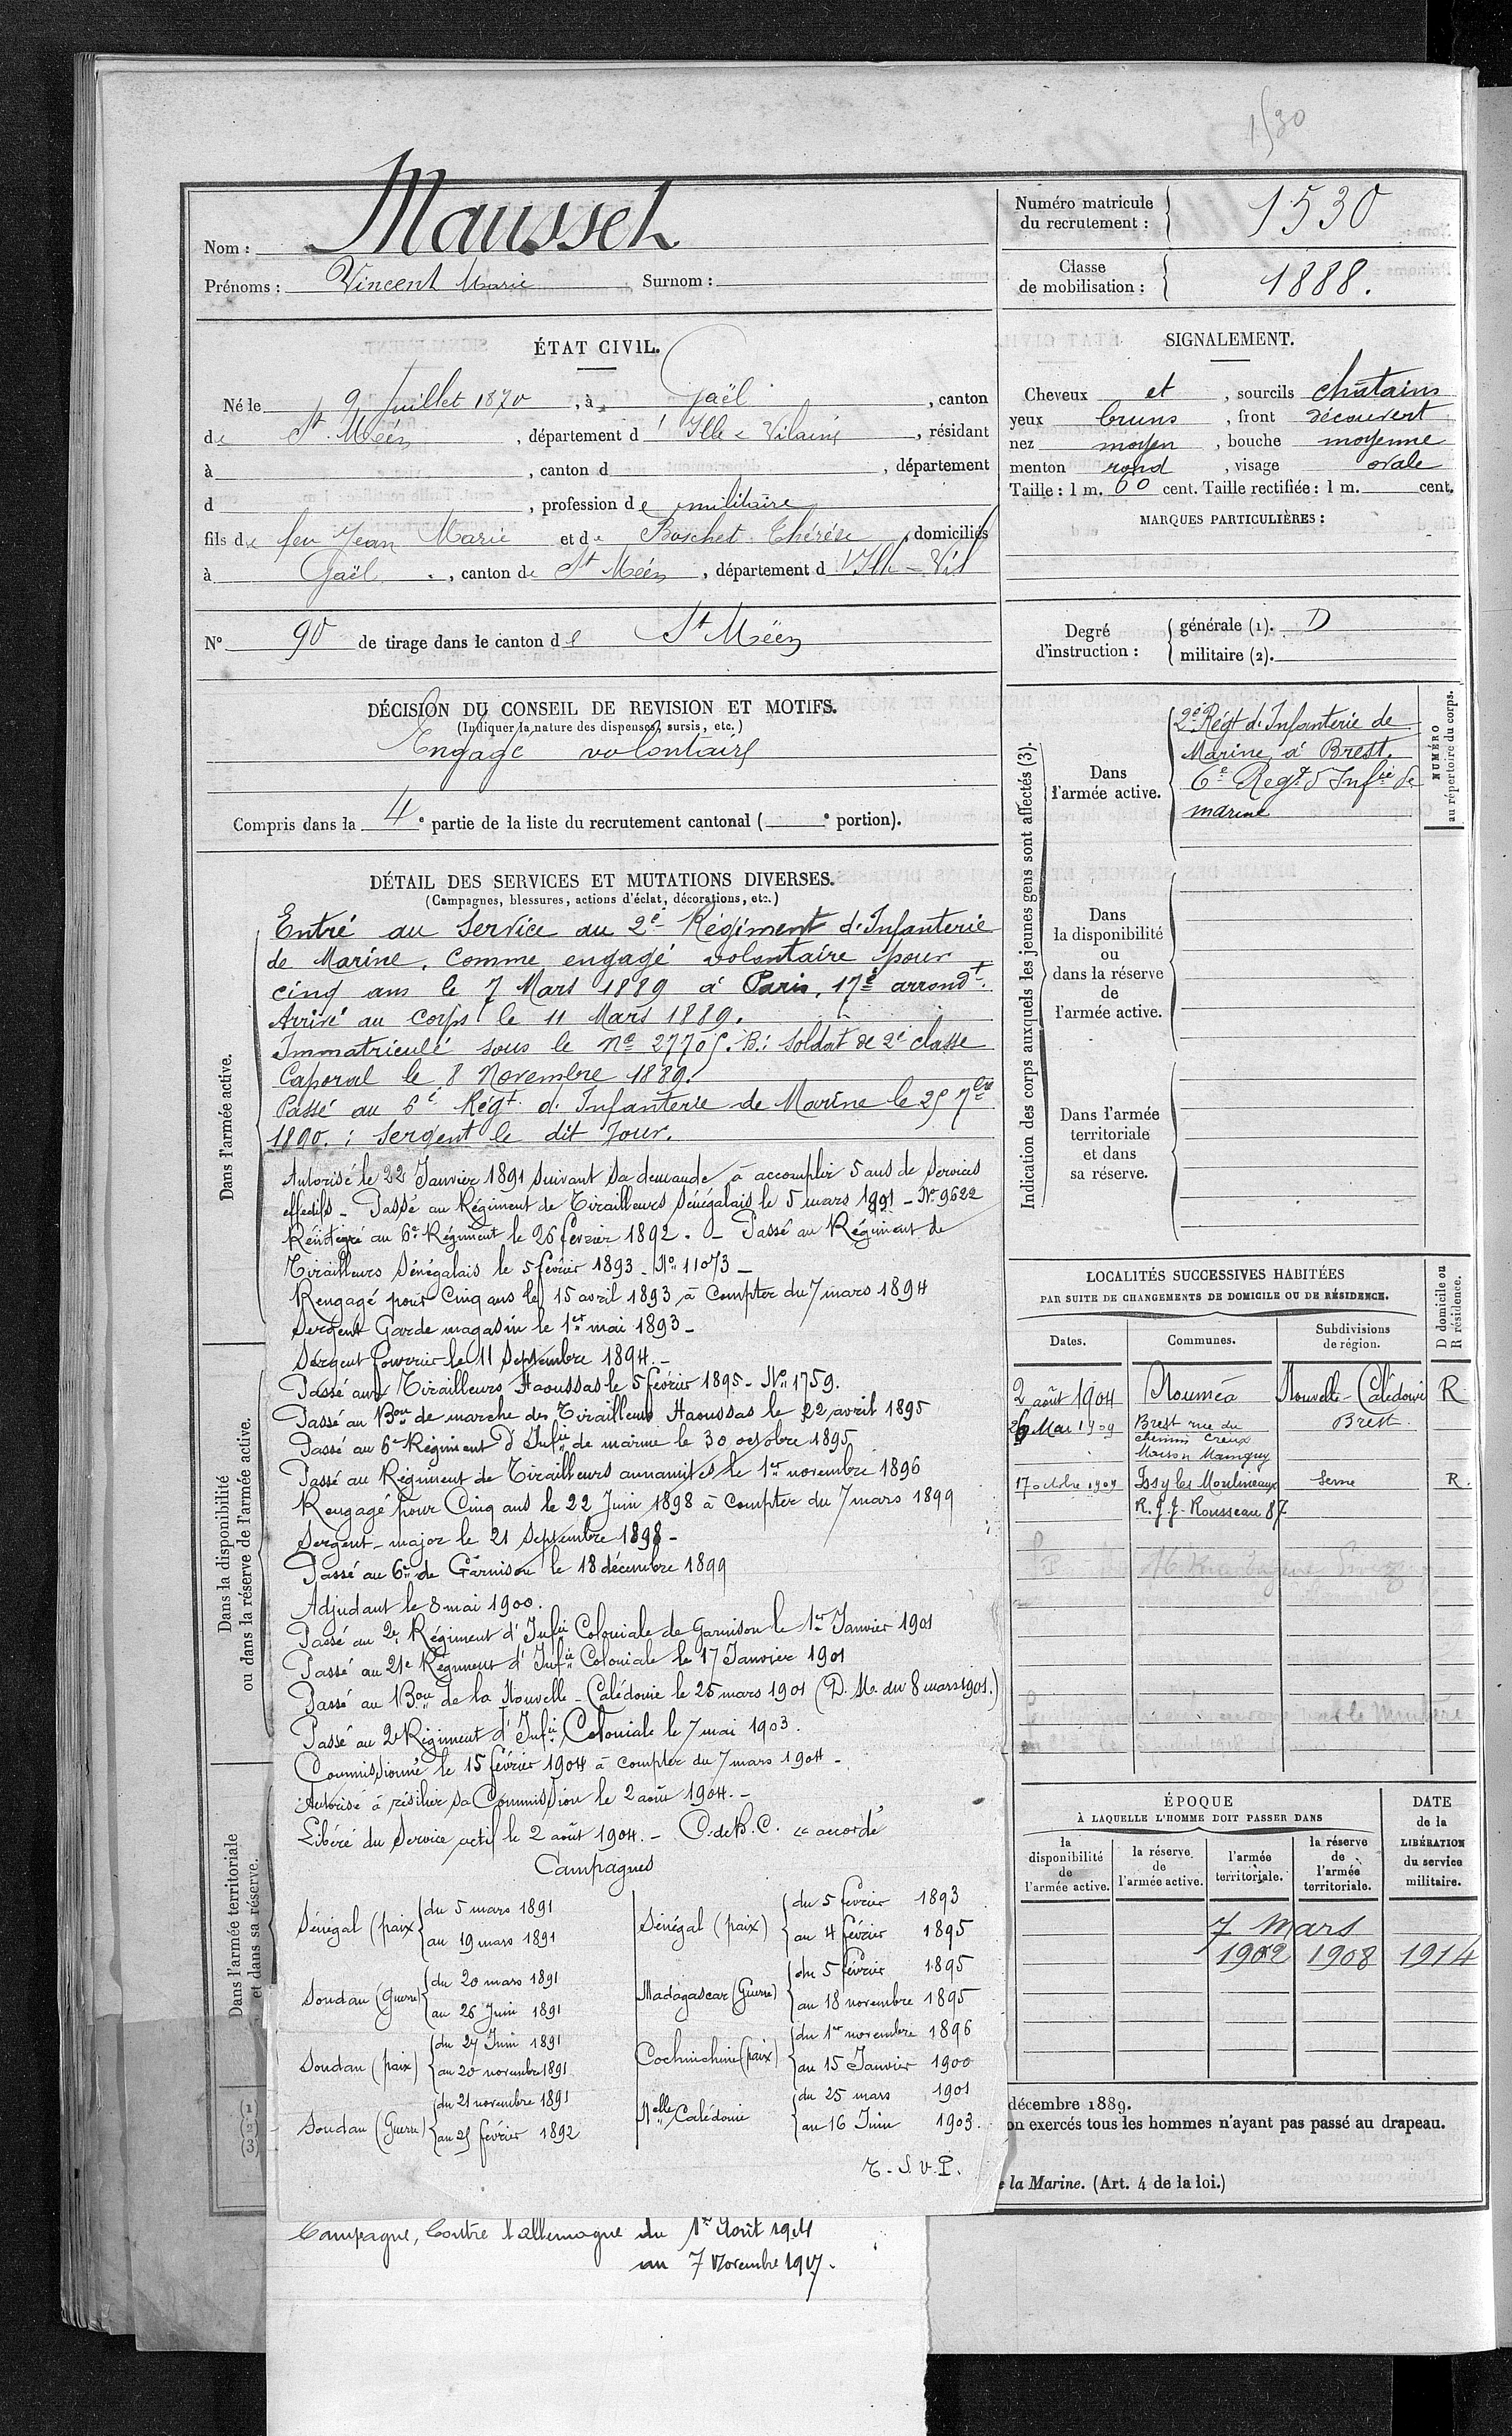 1530
Nom : Mausset
Prénoms : Vincent Marie Surnom :
ÉTAT CIVIL.
Né le 9 Juillet 1870, à Gaël, canton
de St Méen, département d'Ille & Vilaine, résidant
à , canton d , département
d , profession de militaire
fils de feu Jean Marie et de Boschet Thérèse, domiciliés
à Gaël, canton de St Méen, département d'Ille-Vil
N° 90 de tirage dans le canton de St Méen
DÉCISION DU CONSEIL DE REVISION ET MOTIFS.
(Indiquer la nature des dispenses, sursis, etc.)
Engagé volontaire
Compris dans la 4e partie de la liste du recrutement cantonal ( e portion).
DÉTAIL DES SERVICES ET MUTATIONS DIVERSES.
(Campagnes, blessures, actions d'éclat, décorations, etc.)
Dans l'armée active.
Entré au service au 2e Régiment d'Infanterie
de Marine, comme engagé volontaire pour
cinq ans le 7 Mars 1889 à Paris, 17e arrondt.
Arrivé au corps le 11 Mars 1889.
Immatriculé sous le No 27705. B.: Soldat de 2e classe
Caporal le 8 Novembre 1889.
Passé au 6e Régt d'Infanterie de Marine le 25 7bre
1890. ; Sergent le dit jour.
Autorisé le 22 Janvier 1891 suivant sa demande à accomplir 5 ans de services
effectifs - Passé au Régiment de Tirailleurs Sénégalais le 5 mars 1891 - No 9622
Réintégré au 6e Régiment le 26 février 1892. - Passé au Régiment de
Tirailleurs Sénégalais le 5 février 1893 - No 11073 -
Rengagé pour Cinq ans le 15 avril 1893 à compter du 7 mars 1894
Sergent Garde magasin le 1er mai 1893 -
Sergent fourrier le 11 septembre 1894. -
Passé aux Tirailleurs Haoussas le 5 février 1895 - No 1759.
Passé au Bon de marche des Tirailleurs Haoussas le 22 avril 1895
Passé au 6e Régiment d'Infie de marine le 30 octobre 1895
Passé au Régiment de Tirailleurs annamites le 1er novembre 1896
Rengagé pour Cinq ans le 22 Juin 1898 à compter du 7 mars 1899
Sergent-major le 21 Septembre 1898 -
Passé au 6e de Garnison le 18 décembre 1899
Adjudant le 8 mai 1900.
Passé au 2e Régiment d'Infie Coloniale de Garnison le 1er Janvier 1901
Passé au 21e Régiment d'Infie Coloniale le 17 Janvier 1901
Passé au Bon de la Nouvelle-Calédonie le 25 mars 1901 (D. M. du 8 mars 1901.)
Passé au 2e Régiment d'Infie Coloniale le 7 mai 1903.
Commissionné le 15 février 1904 à compter du 7 mars 1904 -
Autorisé à résilier sa Commission le 2 août 1904. -
Libéré du Service actif le 2 août 1904. - C. de B. C. "accordé"
Dans la disponibilité
ou dans la réserve de l'armée active.
Dans l'armée territoriale
et dans sa réserve.
Campagnes
Sénégal (paix) du 5 mars 1891
au 19 mars 1891
Soudan (Guerre) du 20 mars 1891
au 26 Juin 1891
Soudan (paix) du 27 Juin 1891
au 20 novembre 1891
Soudan (Guerre) du 21 novembre 1891
au 25 février 1892
Sénégal (paix) du 5 février 1893
au 4 février 1895
Madagascar (Guerre) du 5 février 1895
au 18 novembre 1895
Cochinchine (paix) du 1er novembre 1896
au 15 Janvier 1900
Nelle Calédonie du 25 mars 1901
au 16 Juin 1903.
T. S. V. P.
(1)
(2)
(3)
Campagne, Contre l'allemagne du 1er Août 1914
au 7 Novembre 1917.
Numéro matricule
du recrutement : 1530
Classe
de mobilisation : 1888.
SIGNALEMENT.
Cheveux et, sourcils châtains
yeux bruns, front découvert
nez moyen, bouche moyenne
menton rond, visage ovale
Taille : 1 m. 60 cent. Taille rectifiée : 1 m. cent.
MARQUES PARTICULIÈRES :
Degré
d'instruction :
générale (1). D
militaire (2).
Indication des corps auxquels les jeunes gens sont affectés (3).
NUMÉRO
au répertoire du corps.
Dans
l'armée active.
2e Régt d'Infanterie de
Marine, à Brest.
6e Regt d'Infie de
marine
Dans
la disponibilité
ou
dans la réserve
de
l'armée active.
Dans l'armée
territoriale
et dans
sa réserve.
LOCALITÉS SUCCESSIVES HABITÉES
PAR SUITE DE CHANGEMENTS DE DOMICILE OU DE RÉSIDENCE.
D domicile ou
R résidence.
Dates. Communes. Subdivisions
de région.
2 août 1904 Nouméa Nouvelle-Calédonie R
26 Mai 1909 Brest rue du Brest
chemin Creux
Maison
17 octobre 1909 Issy les Moulineaux Seine R.
R. J. J. Rousseau 87
ÉPOQUE
À LAQUELLE L'HOMME DOIT PASSER DANS
DATE
de la
LIBÉRATION
du service
militaire.
la
disponibilité
de
l'armée active.
la réserve
de
l'armée active.
l'armée
territoriale.
la réserve
de
l'armée
territoriale.
7 Mars
1902 1908 1914
décembre 1889.
on exercés tous les hommes n'ayant pas passé au drapeau.
e la Marine. (Art. 4 de la loi.)